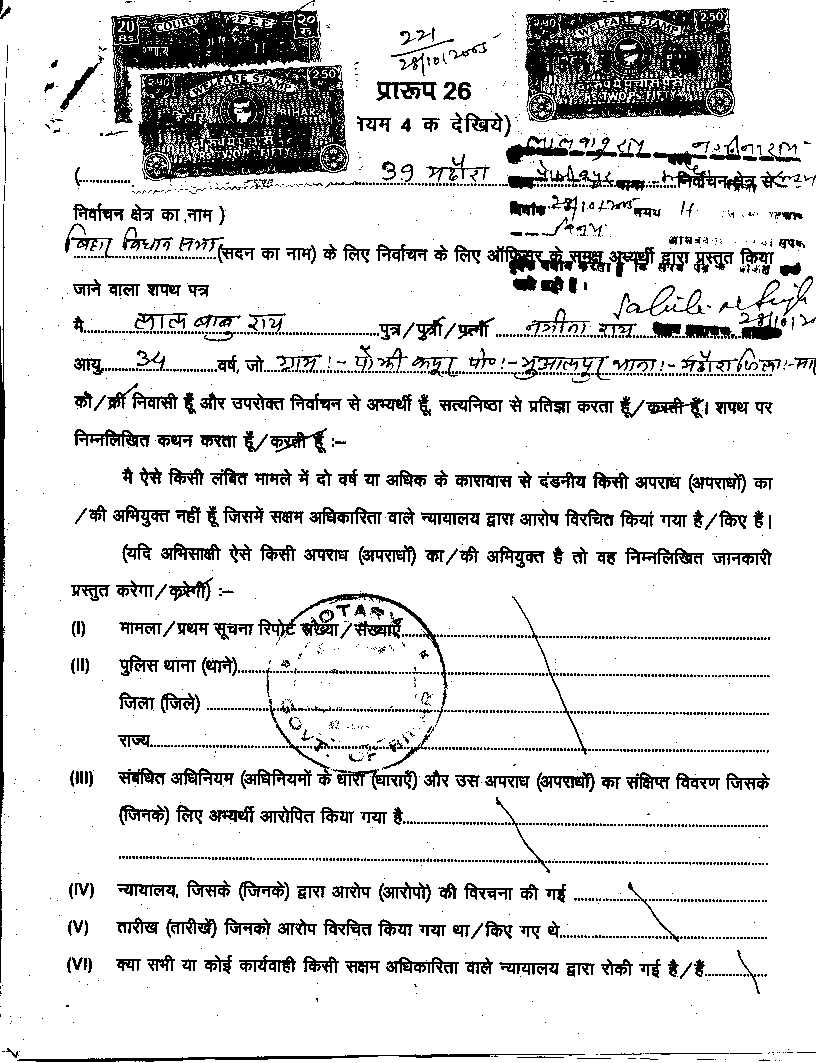 20 COURT FEE 20
RS.
2.50 WELFARE STAMP 2.50
2.50 WELFARE STAMP 2.50
221
28/10/2005
प्रारूप 26
नियम 4 क देखिये)
लाल बाबु राय
(........ 39 मढौरा ........ निर्वाचन क्षेत्र से
दिनांक 28/10/2005 समय 11
निर्वाचन क्षेत्र का नाम )
बिहार विधान सभा (सदन का नाम) के लिए निर्वाचन के लिए ऑफिसर के समक्ष अभ्यर्थी द्वारा प्रस्तुत किया
जाने वाला शपथ पत्र
28/10/20
मै लाल बाबु राय पुत्र/पुत्री/पत्नी नगीना राय
आयु 34 वर्ष, जो ग्राम :- पोझी कपूर पो० :- भुआलपुर थाना :- मढौरा जिला :-
की/की निवासी हूँ और उपरोक्त निर्वाचन से अभ्यर्थी हूँ, सत्यनिष्ठा से प्रतिज्ञा करता हूँ/करती हूँ। शपथ पर
निम्नलिखित कथन करता हूँ/करती हूँ :–
मै ऐसे किसी लंबित मामले में दो वर्ष या अधिक के कारावास से दंडनीय किसी अपराध (अपराधों) का
/की अभियुक्त नहीं हूँ जिसमें सक्षम अधिकारिता वाले न्यायालय द्वारा आरोप विरचित किया गया है/किए हैं।
(यदि अभिसाक्षी ऐसे किसी अपराध (अपराधों) का/की अभियुक्त है तो वह निम्नलिखित जानकारी
प्रस्तुत करेगा/करेगी) :–
NOTARY
(I) मामला/प्रथम सूचना रिपोर्ट संख्या/संख्याएँ
(II) पुलिस थाना (थाने)
जिला (जिले)
राज्य
GOVT. OF BIHAR
(III) संबंधित अधिनियम (अधिनियमों के धारा (धाराएँ) और उस अपराध (अपराधों) का संक्षिप्त विवरण जिसके
(जिनके) लिए अभ्यर्थी आरोपित किया गया है
(IV) न्यायालय, जिसके (जिनके) द्वारा आरोप (आरोपो) की विरचना की गई
(V) तारीख (तारीखें) जिनको आरोप विरचित किया गया था/किए गए थे
(VI) क्या सभी या कोई कार्यवाही किसी सक्षम अधिकारिता वाले न्यायालय द्वारा रोकी गई है/हैं